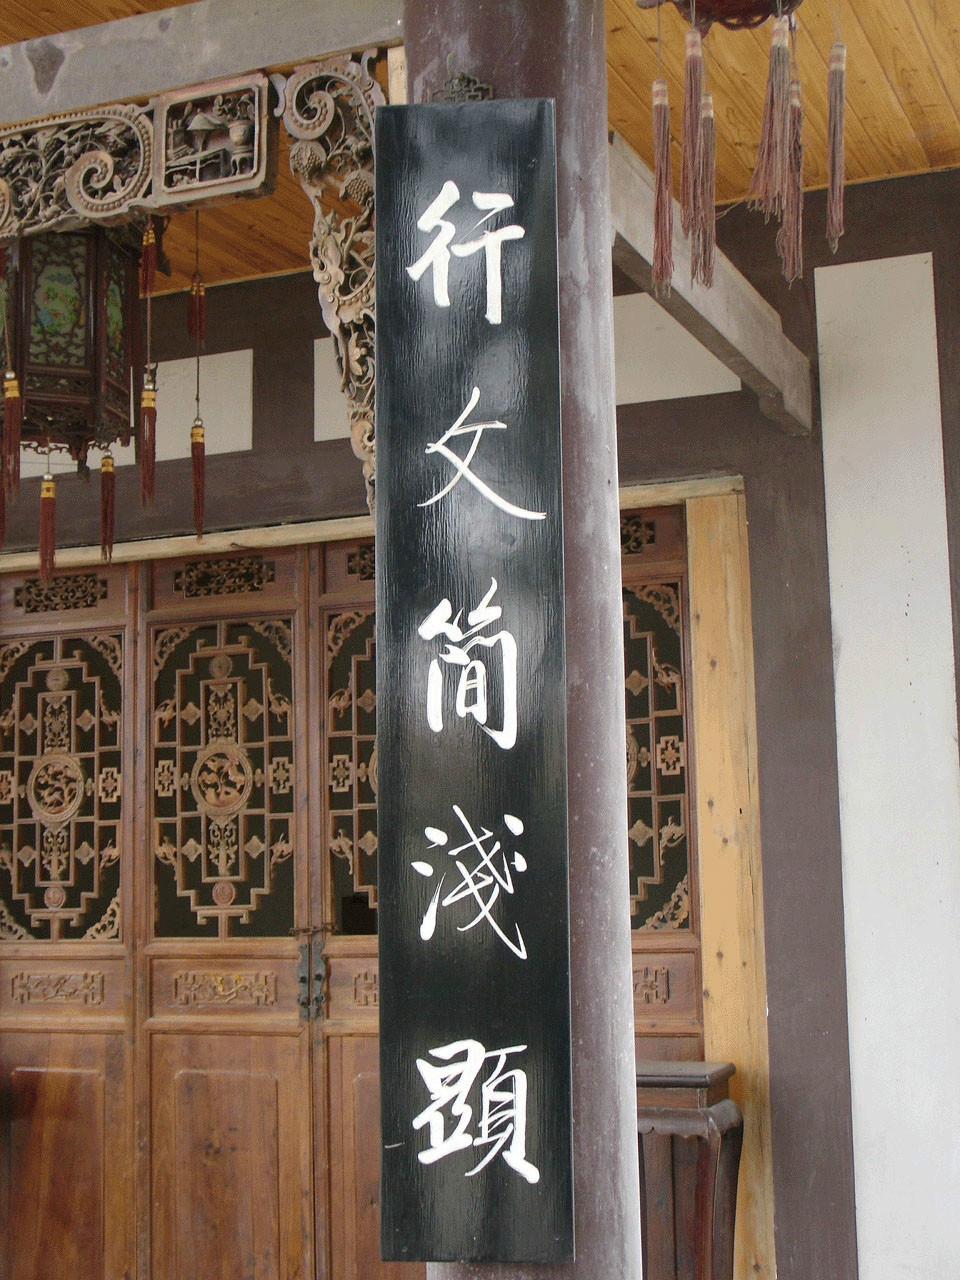 行文简淺顯